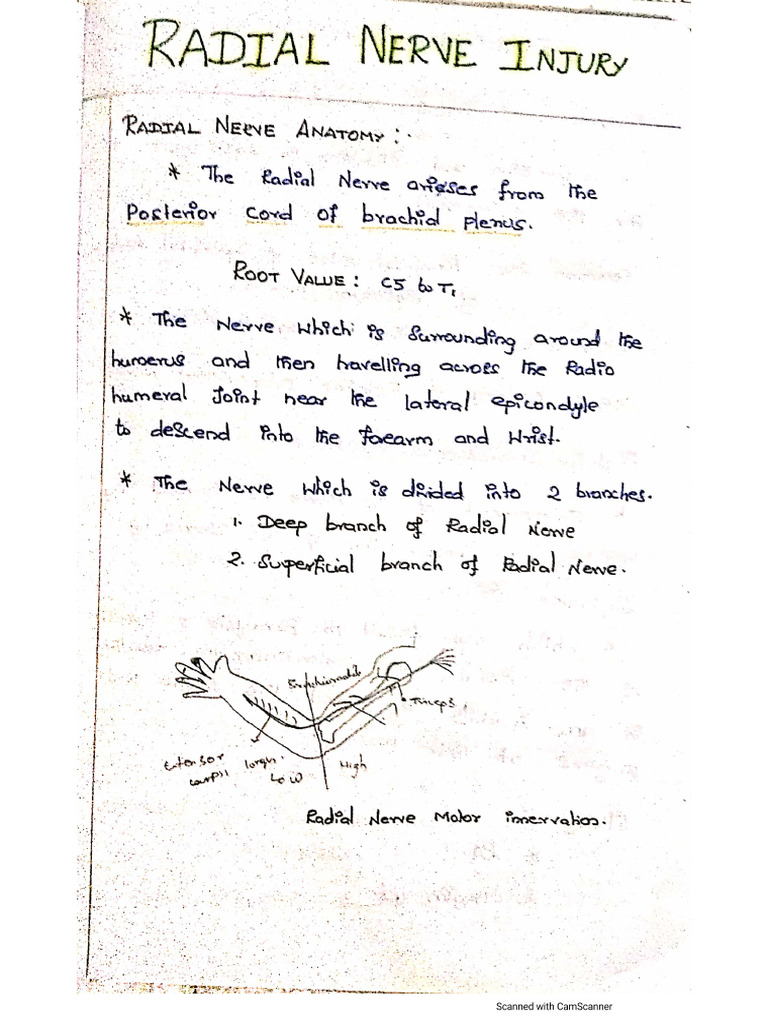 RADIAL NERVE INJURY
RADIAL NERVE ANATOMY :.
* The Radial Nerve arieses from the
Posterior Cord of brachid plenus.
ROOT VALUE : C5 to T1
* The Nerve which is surrounding around the
humerus and then travelling across the Radio
humeral Joint near the lateral epicondyle
to descend into the forearm and Wrist.
* The Nerve which is divided into 2 branches.
1. Deep branch of Radial Nerve
2. Superficial branch of Radial Nerve.
Triceps
Extensor
longus
Low
High
Radial Nerve Motor innervation.
Scanned with CamScanner